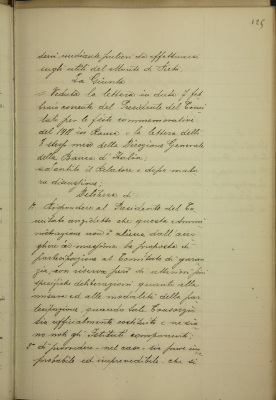 125
dersi mediante prelievi da effettuarsi
sugli utili del Monte di Pietà.
La Giunta
Veduta la lettera in data 7 feb
braio corrente del Presidente del Comi
tato per le feste commemorative
del 1911 in Roma e la lettera delli
8 stesso mese della Direzione Generale
della Banca d'Italia;
sentito il Relatore e dopo matu
ra discussione;
Delibera di
Rispondere al Presidente del Co
mitato anzidetto che questa Ammi
nistrazione non è aliena dall'acco
gliere in massima la proposta di
partecipazione al Consorzio di garan
zia, con riserva però di ulteriori più
specifiche deliberazioni quanto alla
misura ed alle modalità della par
tecipazione, quando tale Consorzio
sia ufficialmente costituito e ne sia
no noti gli Istituti componenti;
di provvedere, nel caso sia pure im
probabile ed imprevedibile, che si